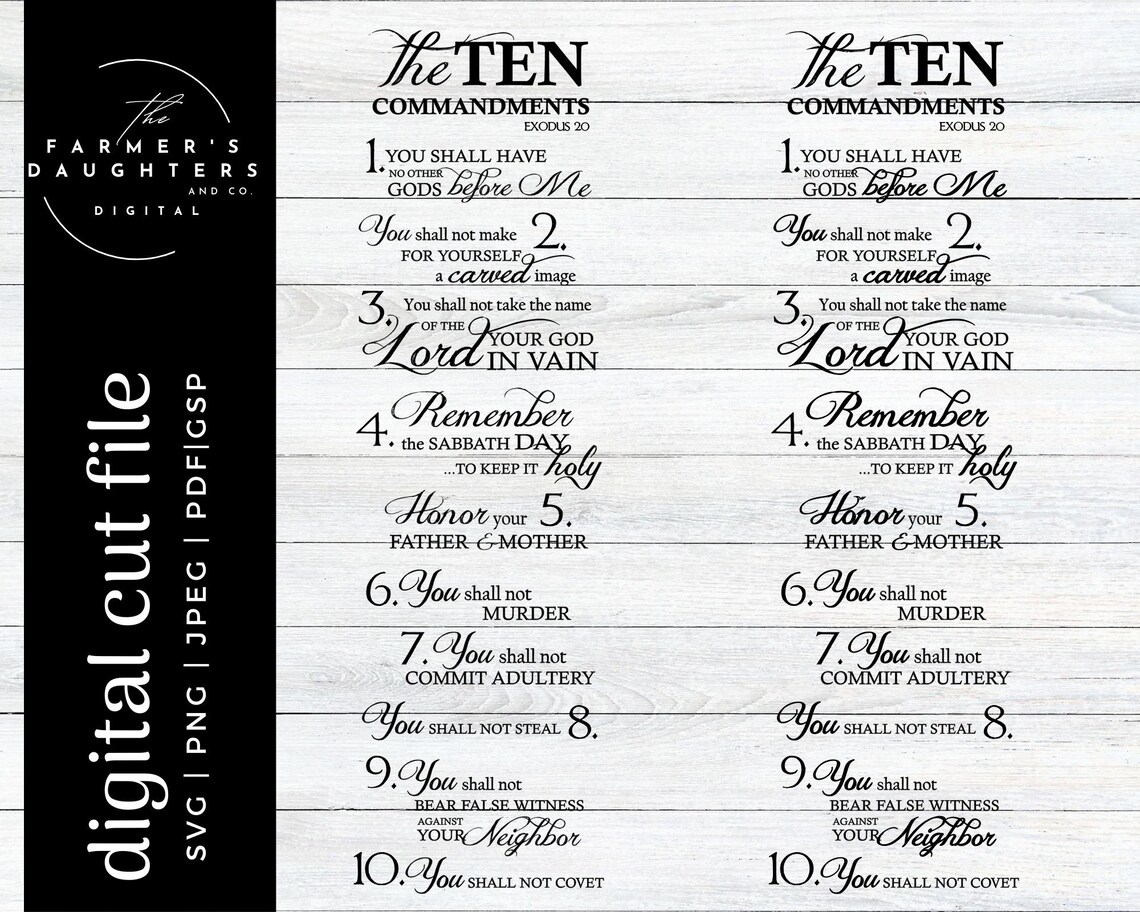 the
FARMER'S
DAUGHTERS
AND CO.
DIGITAL
digital cut file
SVG | PNG | JPEG | PDF|GSP
the TEN
COMMANDMENTS
EXODUS 20
1. YOU SHALL HAVE
NO OTHER
GODS before Me
You shall not make 2.
FOR YOURSELF
a carved image
3. You shall not take the name
OF THE
Lord YOUR GOD
IN VAIN
4. Remember
the SABBATH DAY
...TO KEEP IT holy
Honor your 5.
FATHER & MOTHER
6. You shall not
MURDER
7. You shall not
COMMIT ADULTERY
You SHALL NOT STEAL 8.
9. You shall not
BEAR FALSE WITNESS
AGAINST
YOUR Neighbor
10. You SHALL NOT COVET
the TEN
COMMANDMENTS
EXODUS 20
1. YOU SHALL HAVE
NO OTHER
GODS before Me
You shall not make 2.
FOR YOURSELF
a carved image
3. You shall not take the name
OF THE
Lord YOUR GOD
IN VAIN
4. Remember
the SABBATH DAY
...TO KEEP IT holy
Honor your 5.
FATHER & MOTHER
6. You shall not
MURDER
7. You shall not
COMMIT ADULTERY
You SHALL NOT STEAL 8.
9. You shall not
BEAR FALSE WITNESS
AGAINST
YOUR Neighbor
10. You SHALL NOT COVET